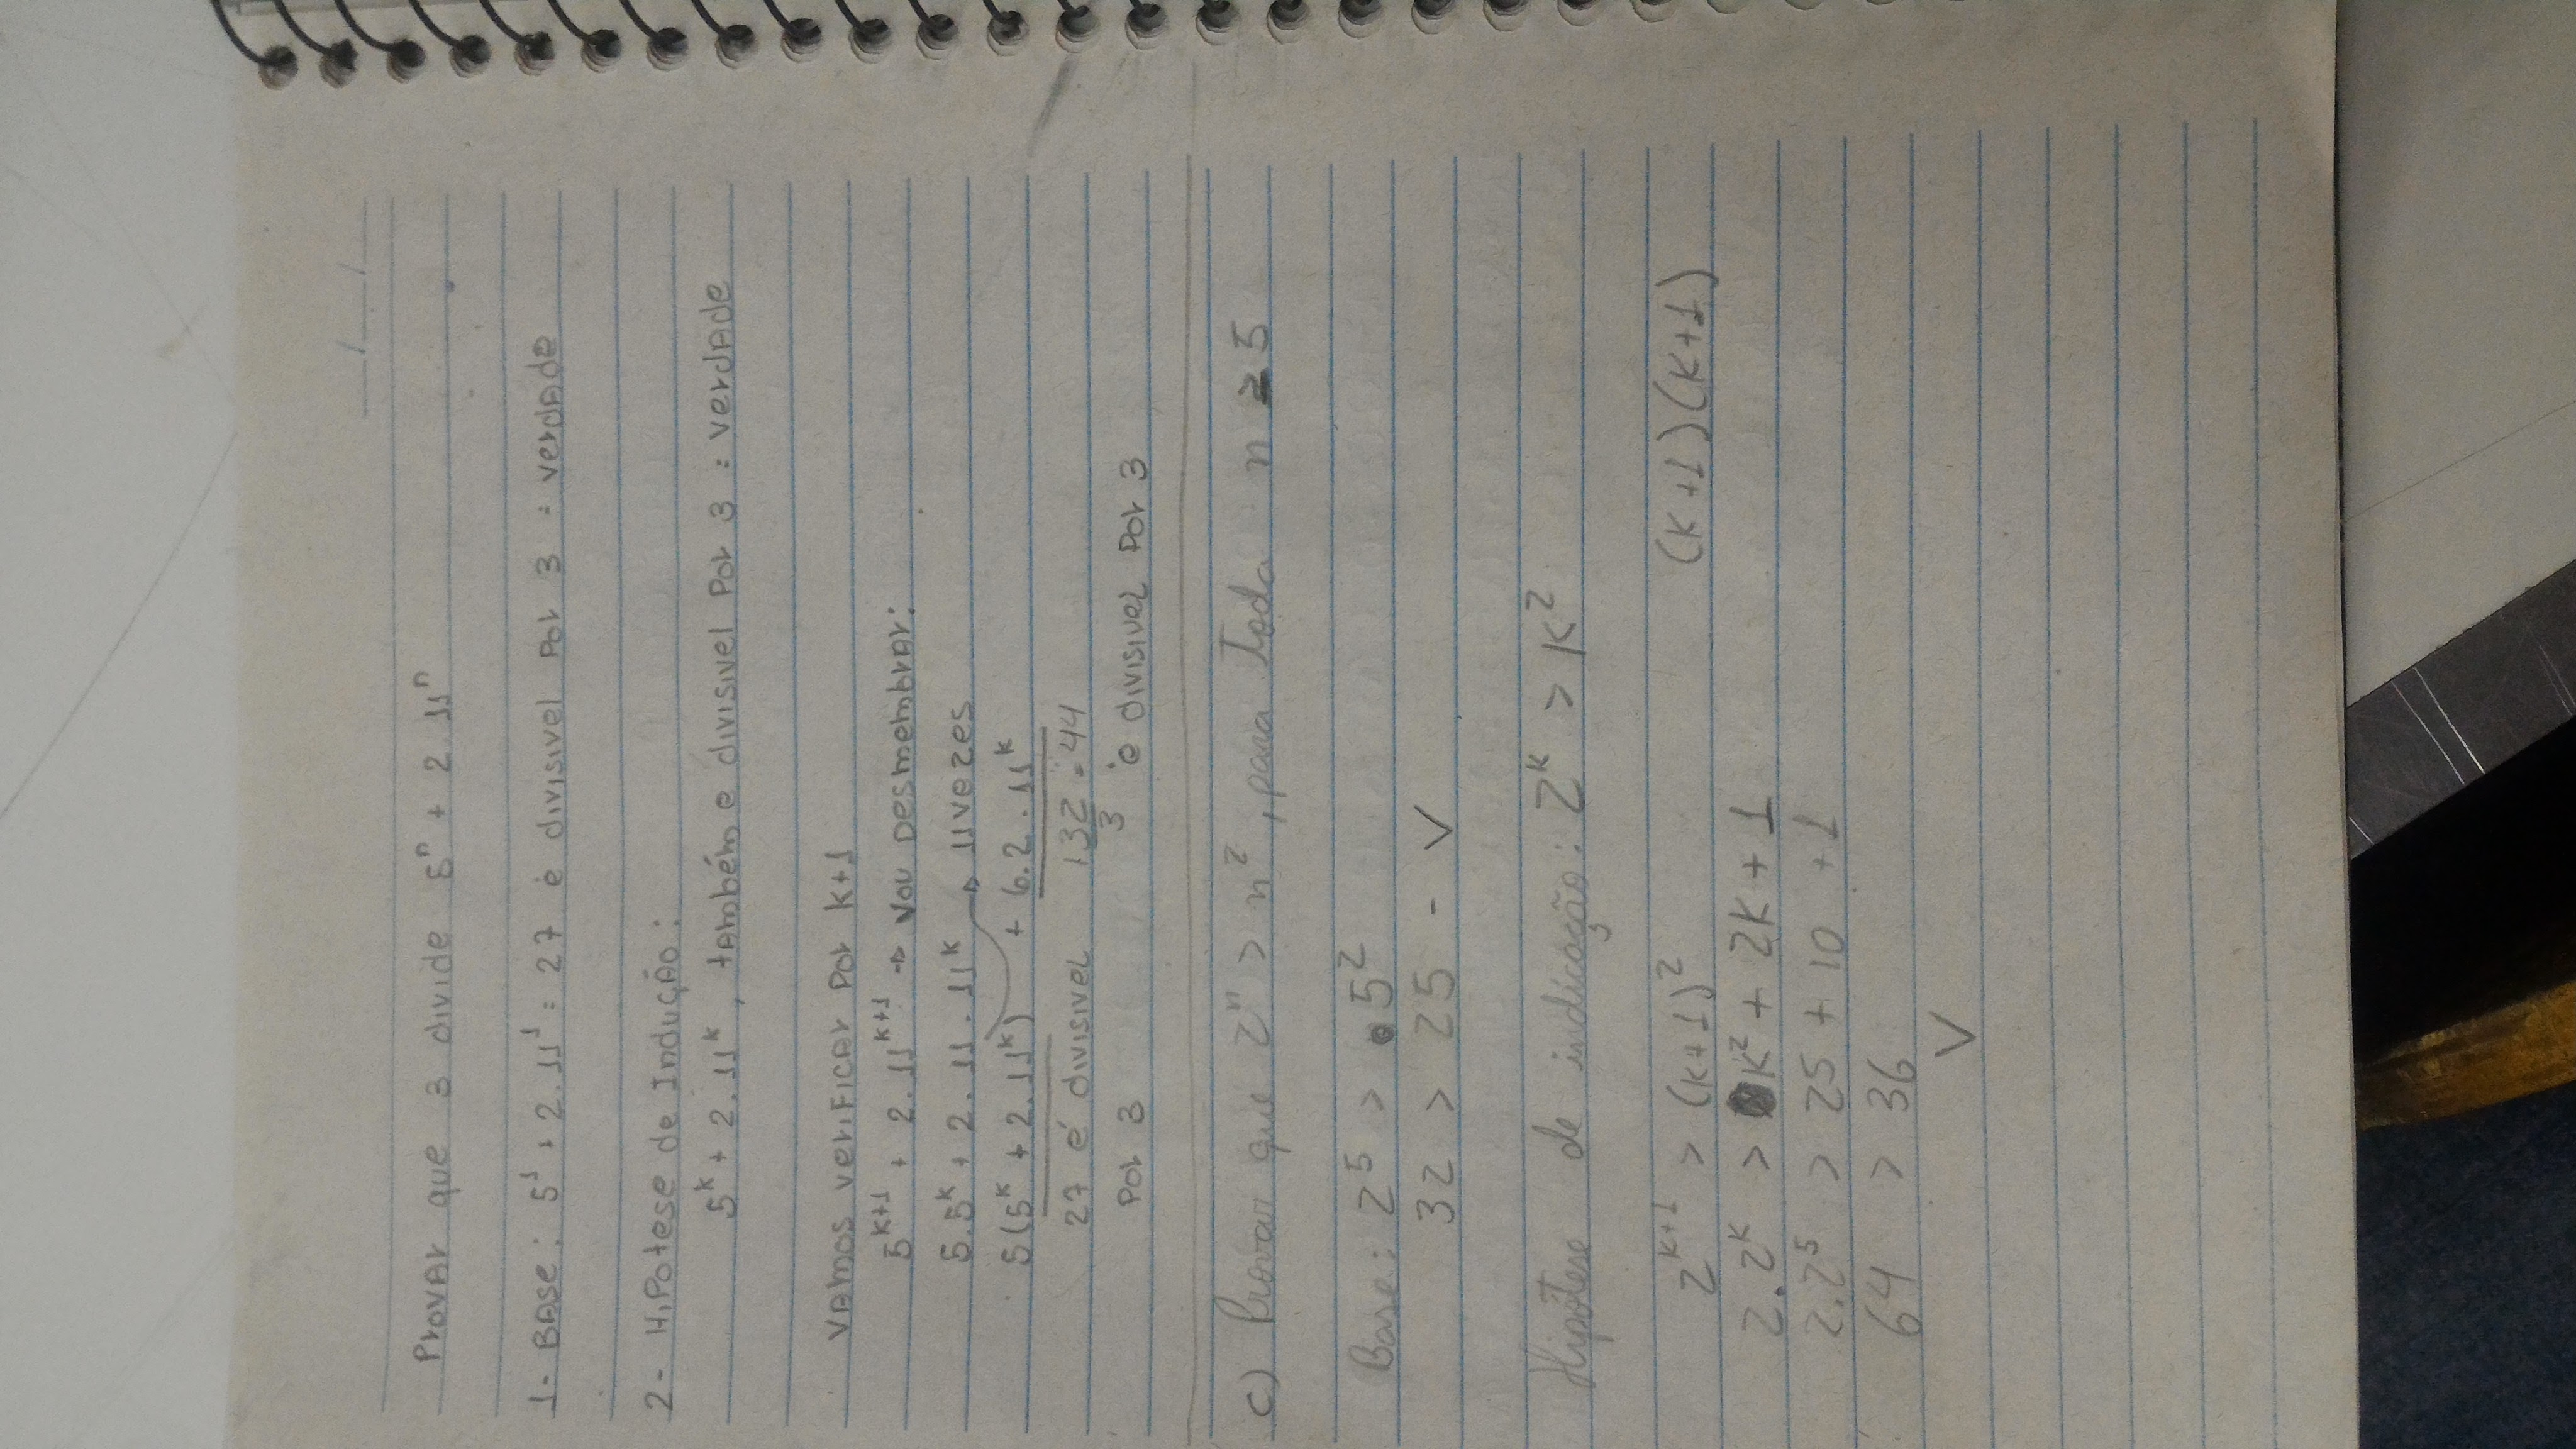 __/__/__
Provar que 3 divide 5ⁿ + 2.11ⁿ
1- Base: 5¹ + 2.11¹ = 27 é divisivel por 3 = verdade
2- Hipotese de Indução:
5ᵏ + 2.11ᵏ, também e divisivel por 3 = verdade
Vamos verificar por k+1
5ᵏ⁺¹ + 2.11ᵏ⁺¹ → vou desmembrar:
5.5ᵏ + 2.11.11ᵏ → 11 vezes
5(5ᵏ + 2.11ᵏ) + 6.2.11ᵏ
27 é divisivel 132/3 = 44
por 3 é divisivel por 3
c) Provar que 2ⁿ > n², para toda n ≥ 5
Base: 2⁵ > 5²
32 > 25 - V
Hipótese de indicação: 2ᵏ > k²
2ᵏ⁺¹ > (k+1)² (k+1)(k+1)
2.2ᵏ > k² + 2k + 1
2.2⁵ > 25 + 10 + 1
64 > 36
V